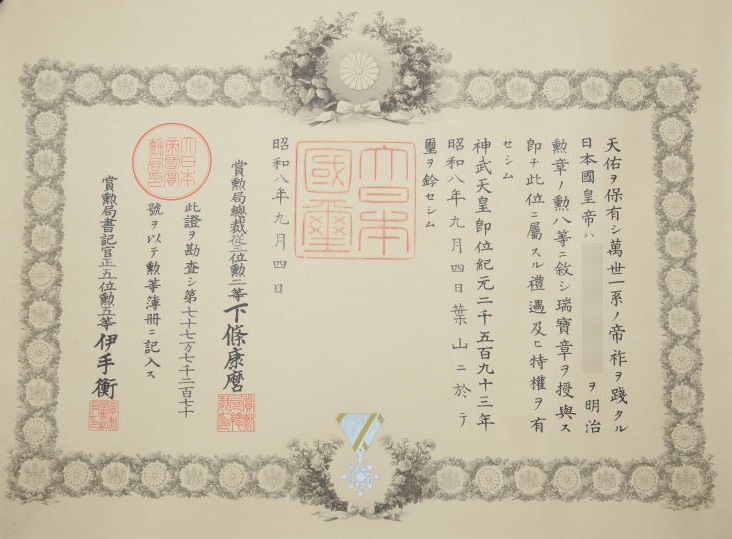 天佑ヲ保有シ萬世一系ノ帝祚ヲ踐タル
日本國皇帝ハ ヲ明治
勲章ノ勲八等ニ敘シ瑞寶章ヲ授與ス
卽チ此位ニ屬スル禮遇及ヒ特權ヲ有
セシム
神武天皇卽位紀元二千五百九十三年
昭和八年九月四日葉山ニ於テ
璽ヲ鈐セシム
大日本
國璽
昭和八年九月四日
賞勲局總裁從三位勲二等下條康麿
此證ヲ勘査シ第七十七万七千二百七十
號ヲ以テ勲等簿册ニ記入ス
賞勲局書記官正五位勲五等伊手衡
大日本
帝國賞
勲局印